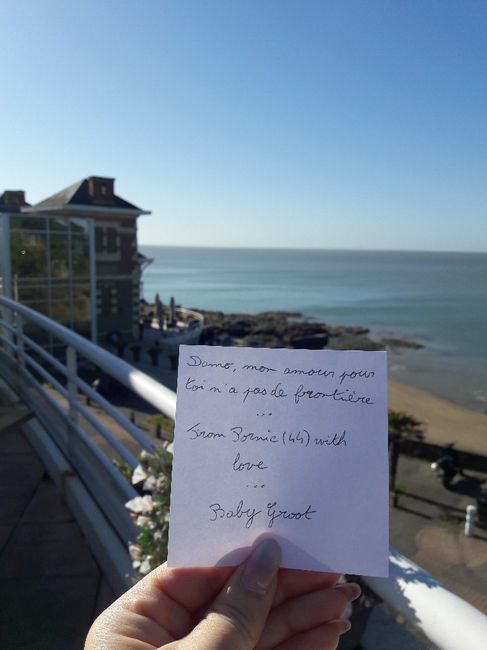 Damo, mon amour pour
toi n'a pas de frontière
...
From Pornic (44) with
love
...
Baby Groot